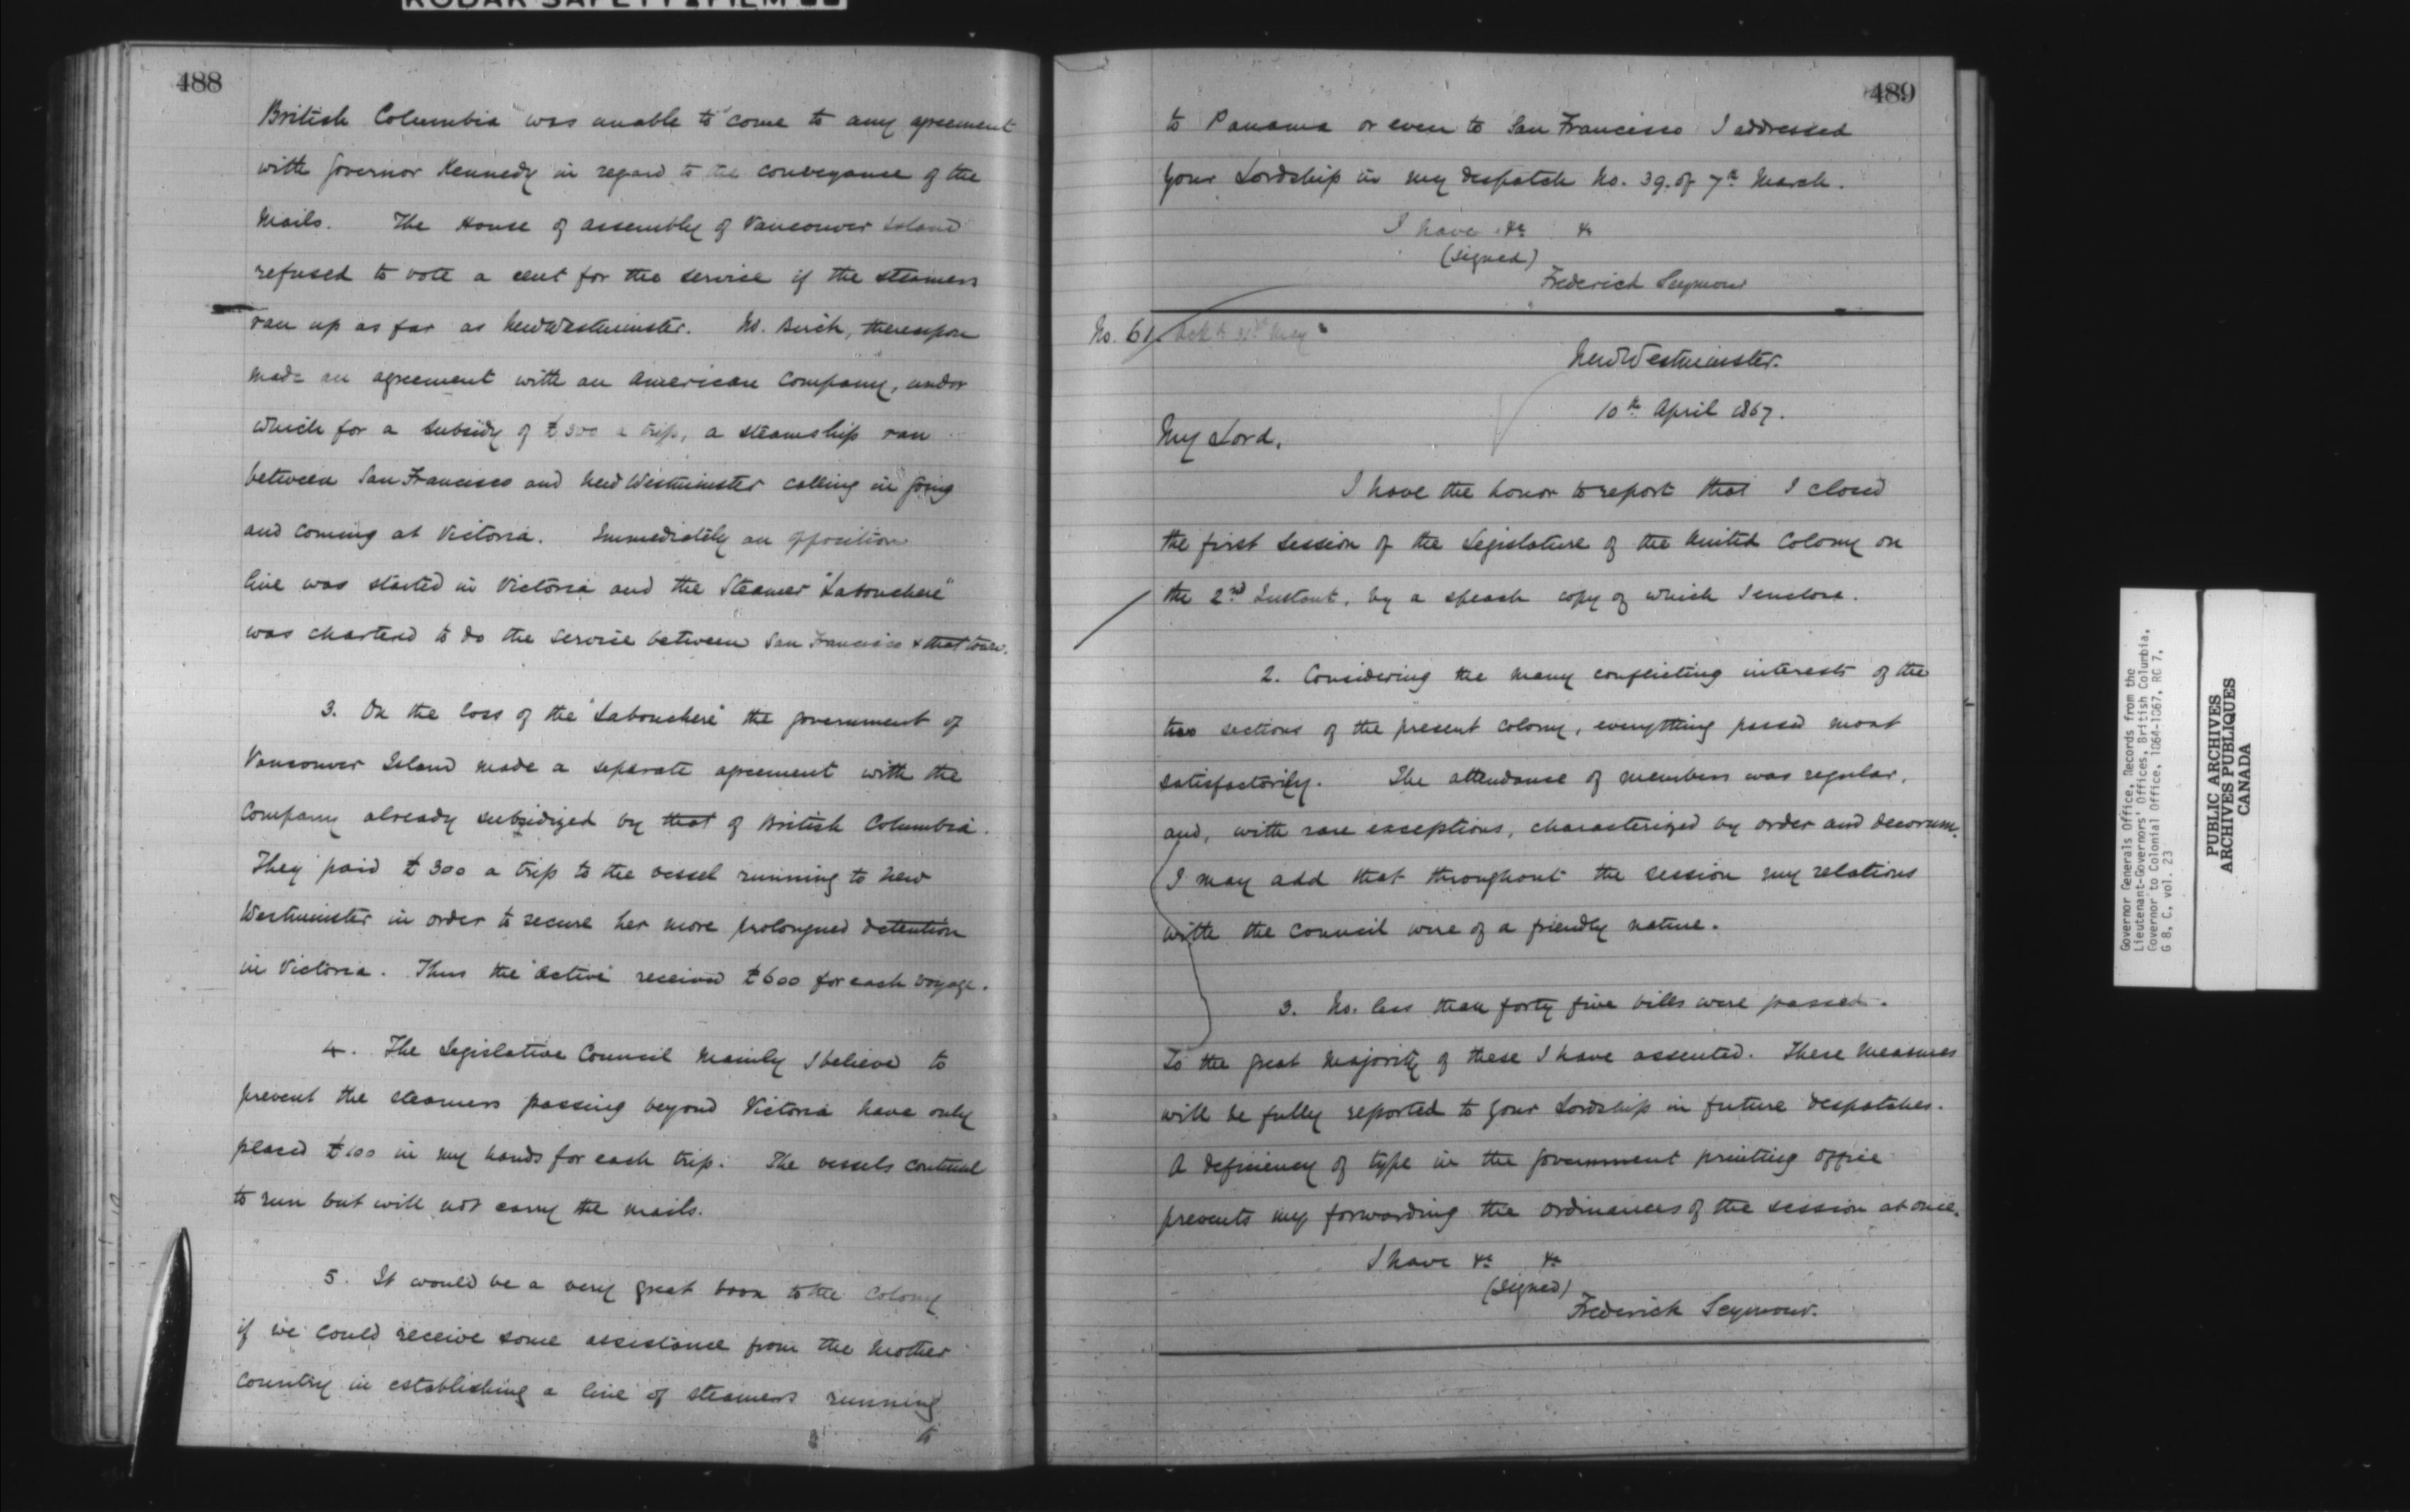 KODAK SAFETY FILM
488
British Columbia was unable to come to any agreement
with Governor Kennedy in regard to the conveyance of the
Mails. The House of Assembly of Vancouver Island
refused to vote a cent for the service if the steamers
ran up as far as New Westminster. Mr. Birch, thereupon
made an agreement with an American Company, under
which for a subsidy of £300 a trip, a steamship ran
between San Francisco and New Westminster calling in going
and coming at Victoria. Immediately an opposition
line was started in Victoria and the Steamer "Labouchere"
was chartered to do the service between San Francisco & that town.
3. On the loss of the "Labouchere" the government of
Vancouver Island made a separate agreement with the
Company already subsidized by that of British Columbia.
They paid £300 a trip to the vessel running to New
Westminster in order to secure her more prolongued detention
in Victoria. Thus the "Active" received £600 for each voyage.
4. The Legislative Council mainly I believe to
prevent the steamers passing beyond Victoria have only
placed £100 in my hands for each trip. The vessels continue
to run but will not carry the mails.
5. It would be a very great boon to the Colony
if we could receive some assistance from the Mother
Country in establishing a line of steamers running
to
489
to Panama or even to San Francisco I addressed
Your Lordship in my despatch No. 39. of 7th March.
I have &c &c
(signed)
Frederick Seymour
No. 61. 31st May
New Westminster.
10th April 1867.
My Lord,
I have the honor to report that I closed
the first session of the Legislature of the United Colony on
the 2nd Instant, by a speach copy of which I enclose.
2. Considering the many conflicting interests of the
two sections of the present colony, everything passed most
satisfactorily. The attendance of members was regular,
and, with rare exceptions, characterized by order and decorum.
I may add that throughout the session my relations
with the Council were of a friendly nature.
3. No. less than forty five bills were passed.
To the great majority of these I have assented. These measures
will be fully reported to Your Lordship in future despatches.
A deficiency of type in the government printing office
prevents my forwarding the ordinances of the session at once.
I have &c &c
(signed)
Frederick Seymour.
Governor Generals Office, Records from the
Lieutenant-Governors' Offices, British Columbia,
Governor to Colonial Office, 1864-1867, RG 7,
G 8, C, vol. 23
PUBLIC ARCHIVES
ARCHIVES PUBLIQUES
CANADA